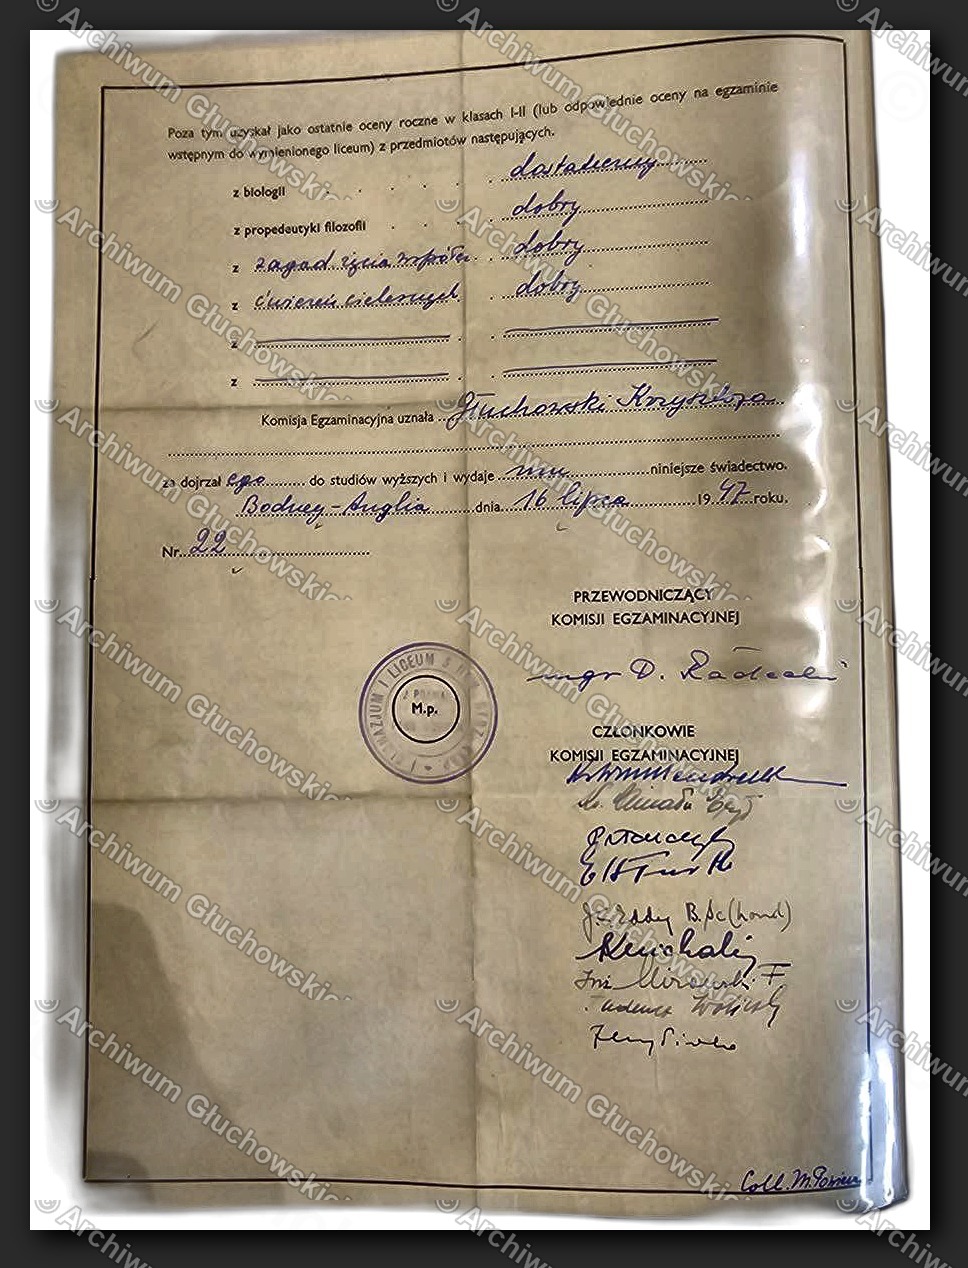 Poza tym uzyskał jako ostatnie oceny roczne w klasach I-II (lub odpowiednie oceny na egzaminie
wstępnym do wymienionego liceum) z przedmiotów następujących.
z biologii . . . . . dostateczny
z propedeutyki filozofii . . . dobry
z zagad życia współcz. . dobry
z ćwiczeń cielesnych . dobry
z
z
Komisja Egzaminacyjna uznała Głuchowski Krzysztofa
za dojrzałego do studiów wyższych i wydaje mu niniejsze świadectwo.
Bodney - Anglia dnia 16 lipca 1947 roku.
Nr. 22
PRZEWODNICZĄCY
KOMISJI EGZAMINACYJNEJ
GIMNAZJUM I LICEUM
M.p.
mgr D.
CZŁONKOWIE
KOMISJI EGZAMINACYJNEJ
B.Sc (hond)
Inż
Tadeusz
Coll. M.
© Archiwum Głuchowskich